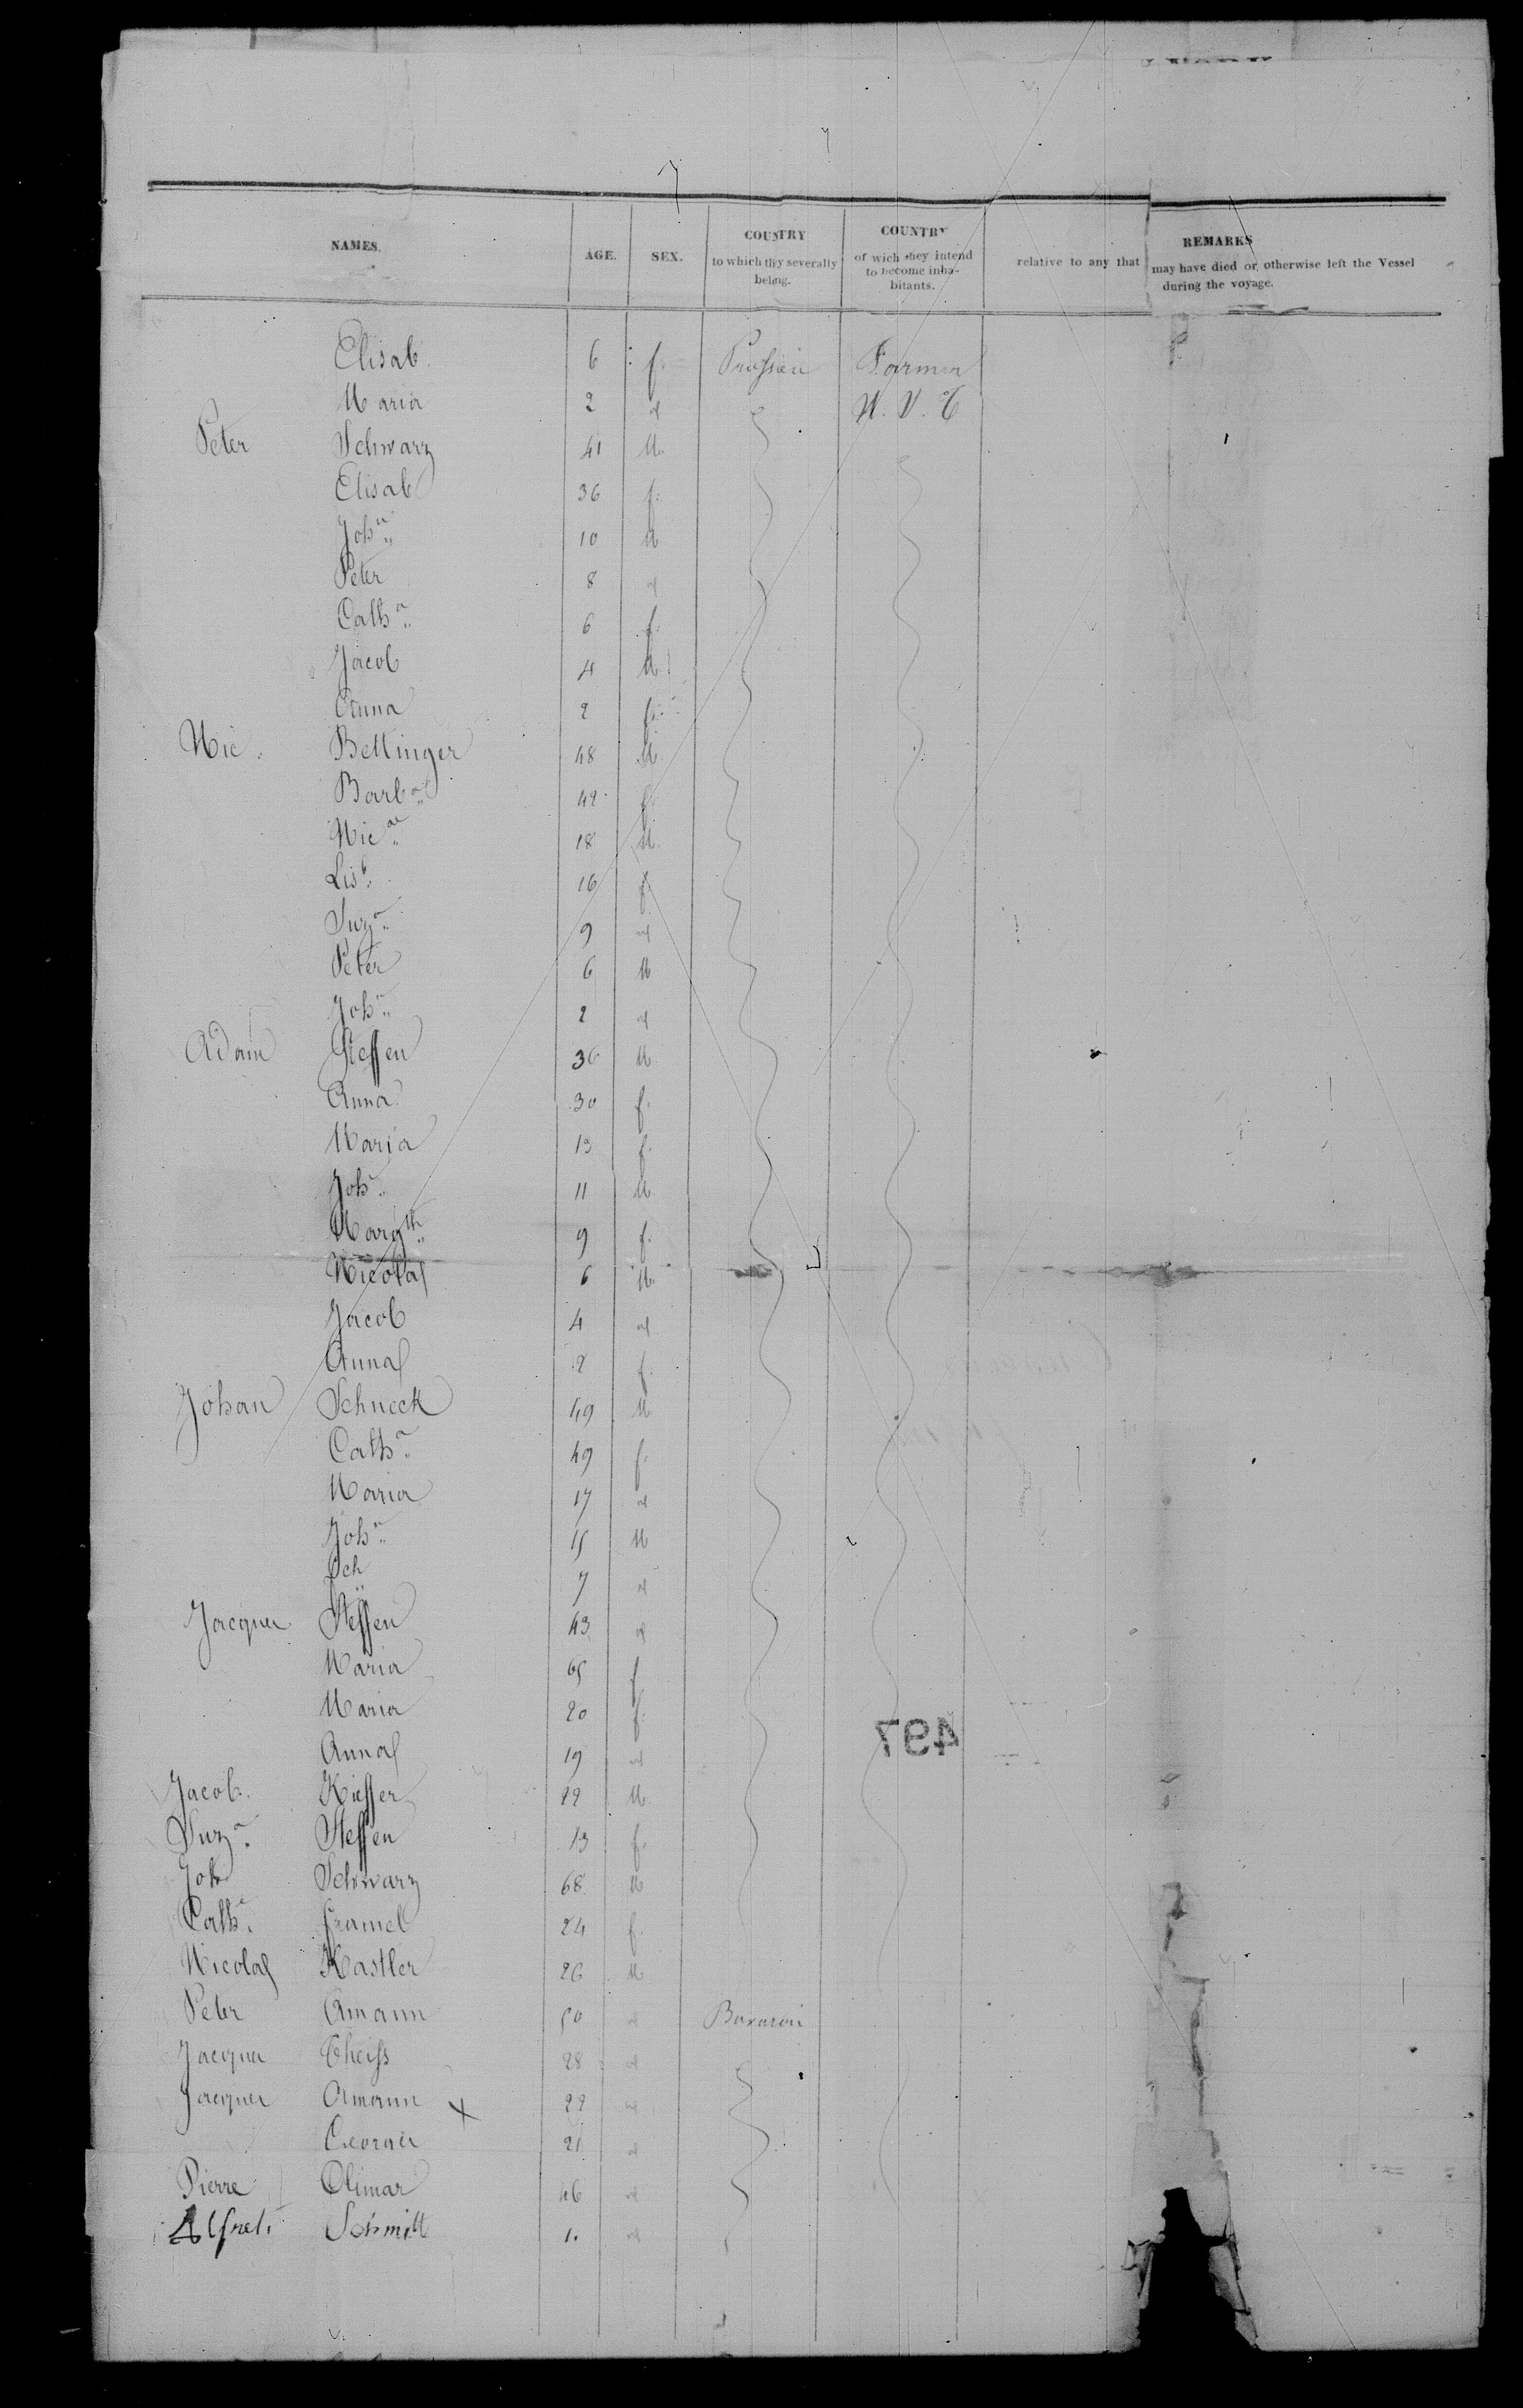 NAMES. AGE. SEX. COUNTRY to which thy severally belong. COUNTRY of wich they intend to become inha-bitants. REMARKS relative to any that may have died or otherwise left the Vessel during the voyage.
Elisab. 6 f. Prussien Farmer
Maria 2 id U. V. St
Peter Schwarz 41 M.
Elisab 36 f.
Johⁿ 10 M
Peter 8 id
Cathᵃ 6 f.
Jacob 4 M.
Anna 2 f.
Nic. Bettinger 48 M.
Barbᵃ 42 f.
Nicᵃˢ 18 M.
Lisᵇ 16 f.
Suzᵃ 9 id
Peter 6 M
Johⁿ 2 id
Adam Steffen 36 M.
Anna 30 f.
Maria 13 f.
Johⁿ 11 M.
Margᵗʰ 9 f.
Nicolas 6 M.
Jacob 4 id
Anna 2 f.
Johan Schneck 49 M
Cathᵃ 49 f.
Maria 17 id
Johⁿ 15 M
7 id
Jacques Steffen 43 id
Maria 65 f
Maria 20 f.
Anna 19 id
497
Jacob. Kieffer 22 M
Suzᵃ Steffen 13 f.
Joh Schwarz 68 M
Cathᵃ 24 f.
Nicolas Kastler 26 M
Peter Amann 50 id Bavaroi
Jacques Theiss 28 id
Jacques Amann x 22 id
George 21 id
Pierre Olimar 46 id
Schmitt 1. id